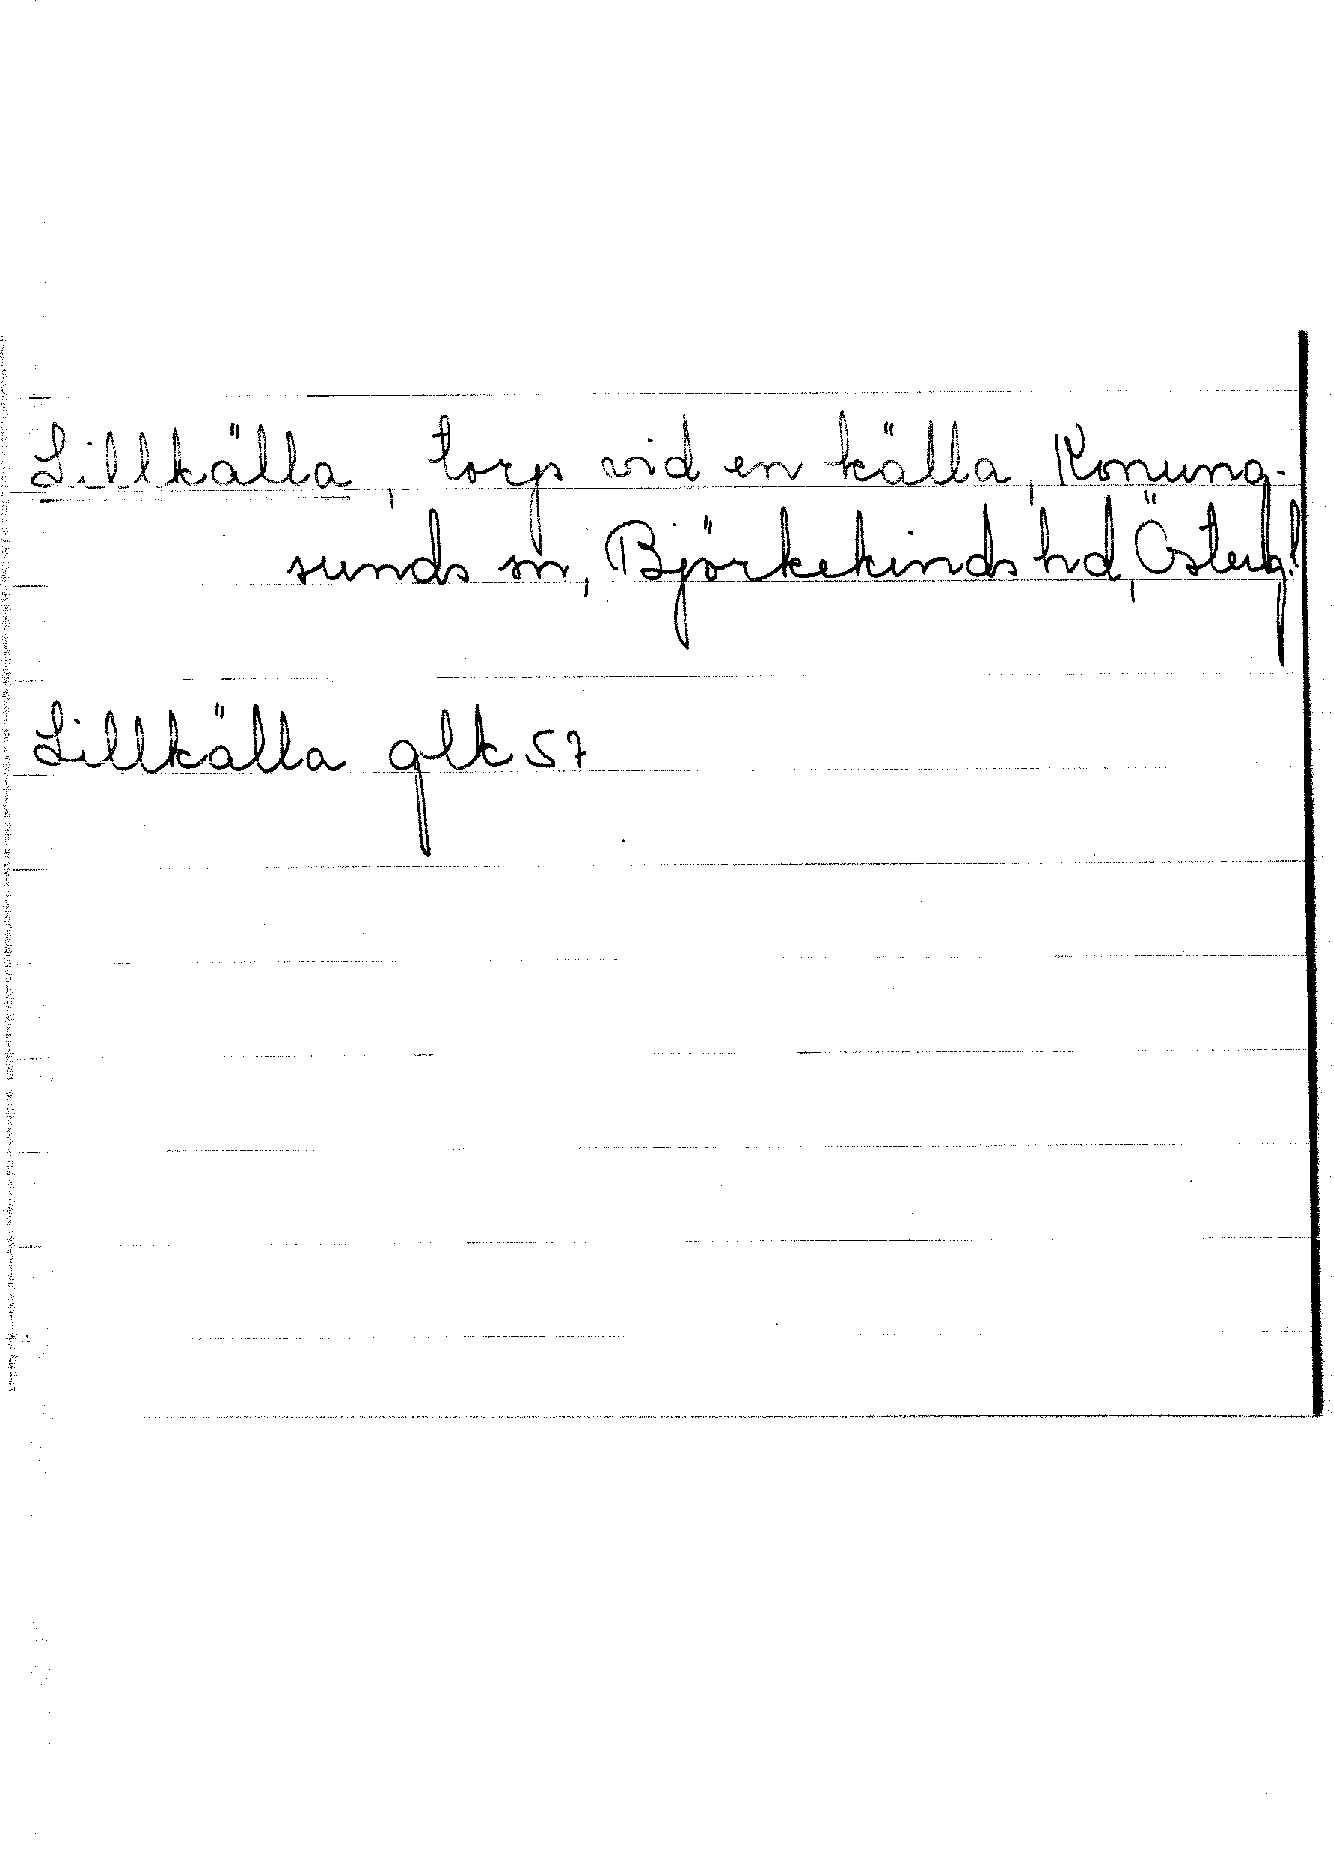 Lillkälla, torp vid en källa, Konung-
sunds sn, Björkekinds hd, Österg!
Lillkälla glk 57